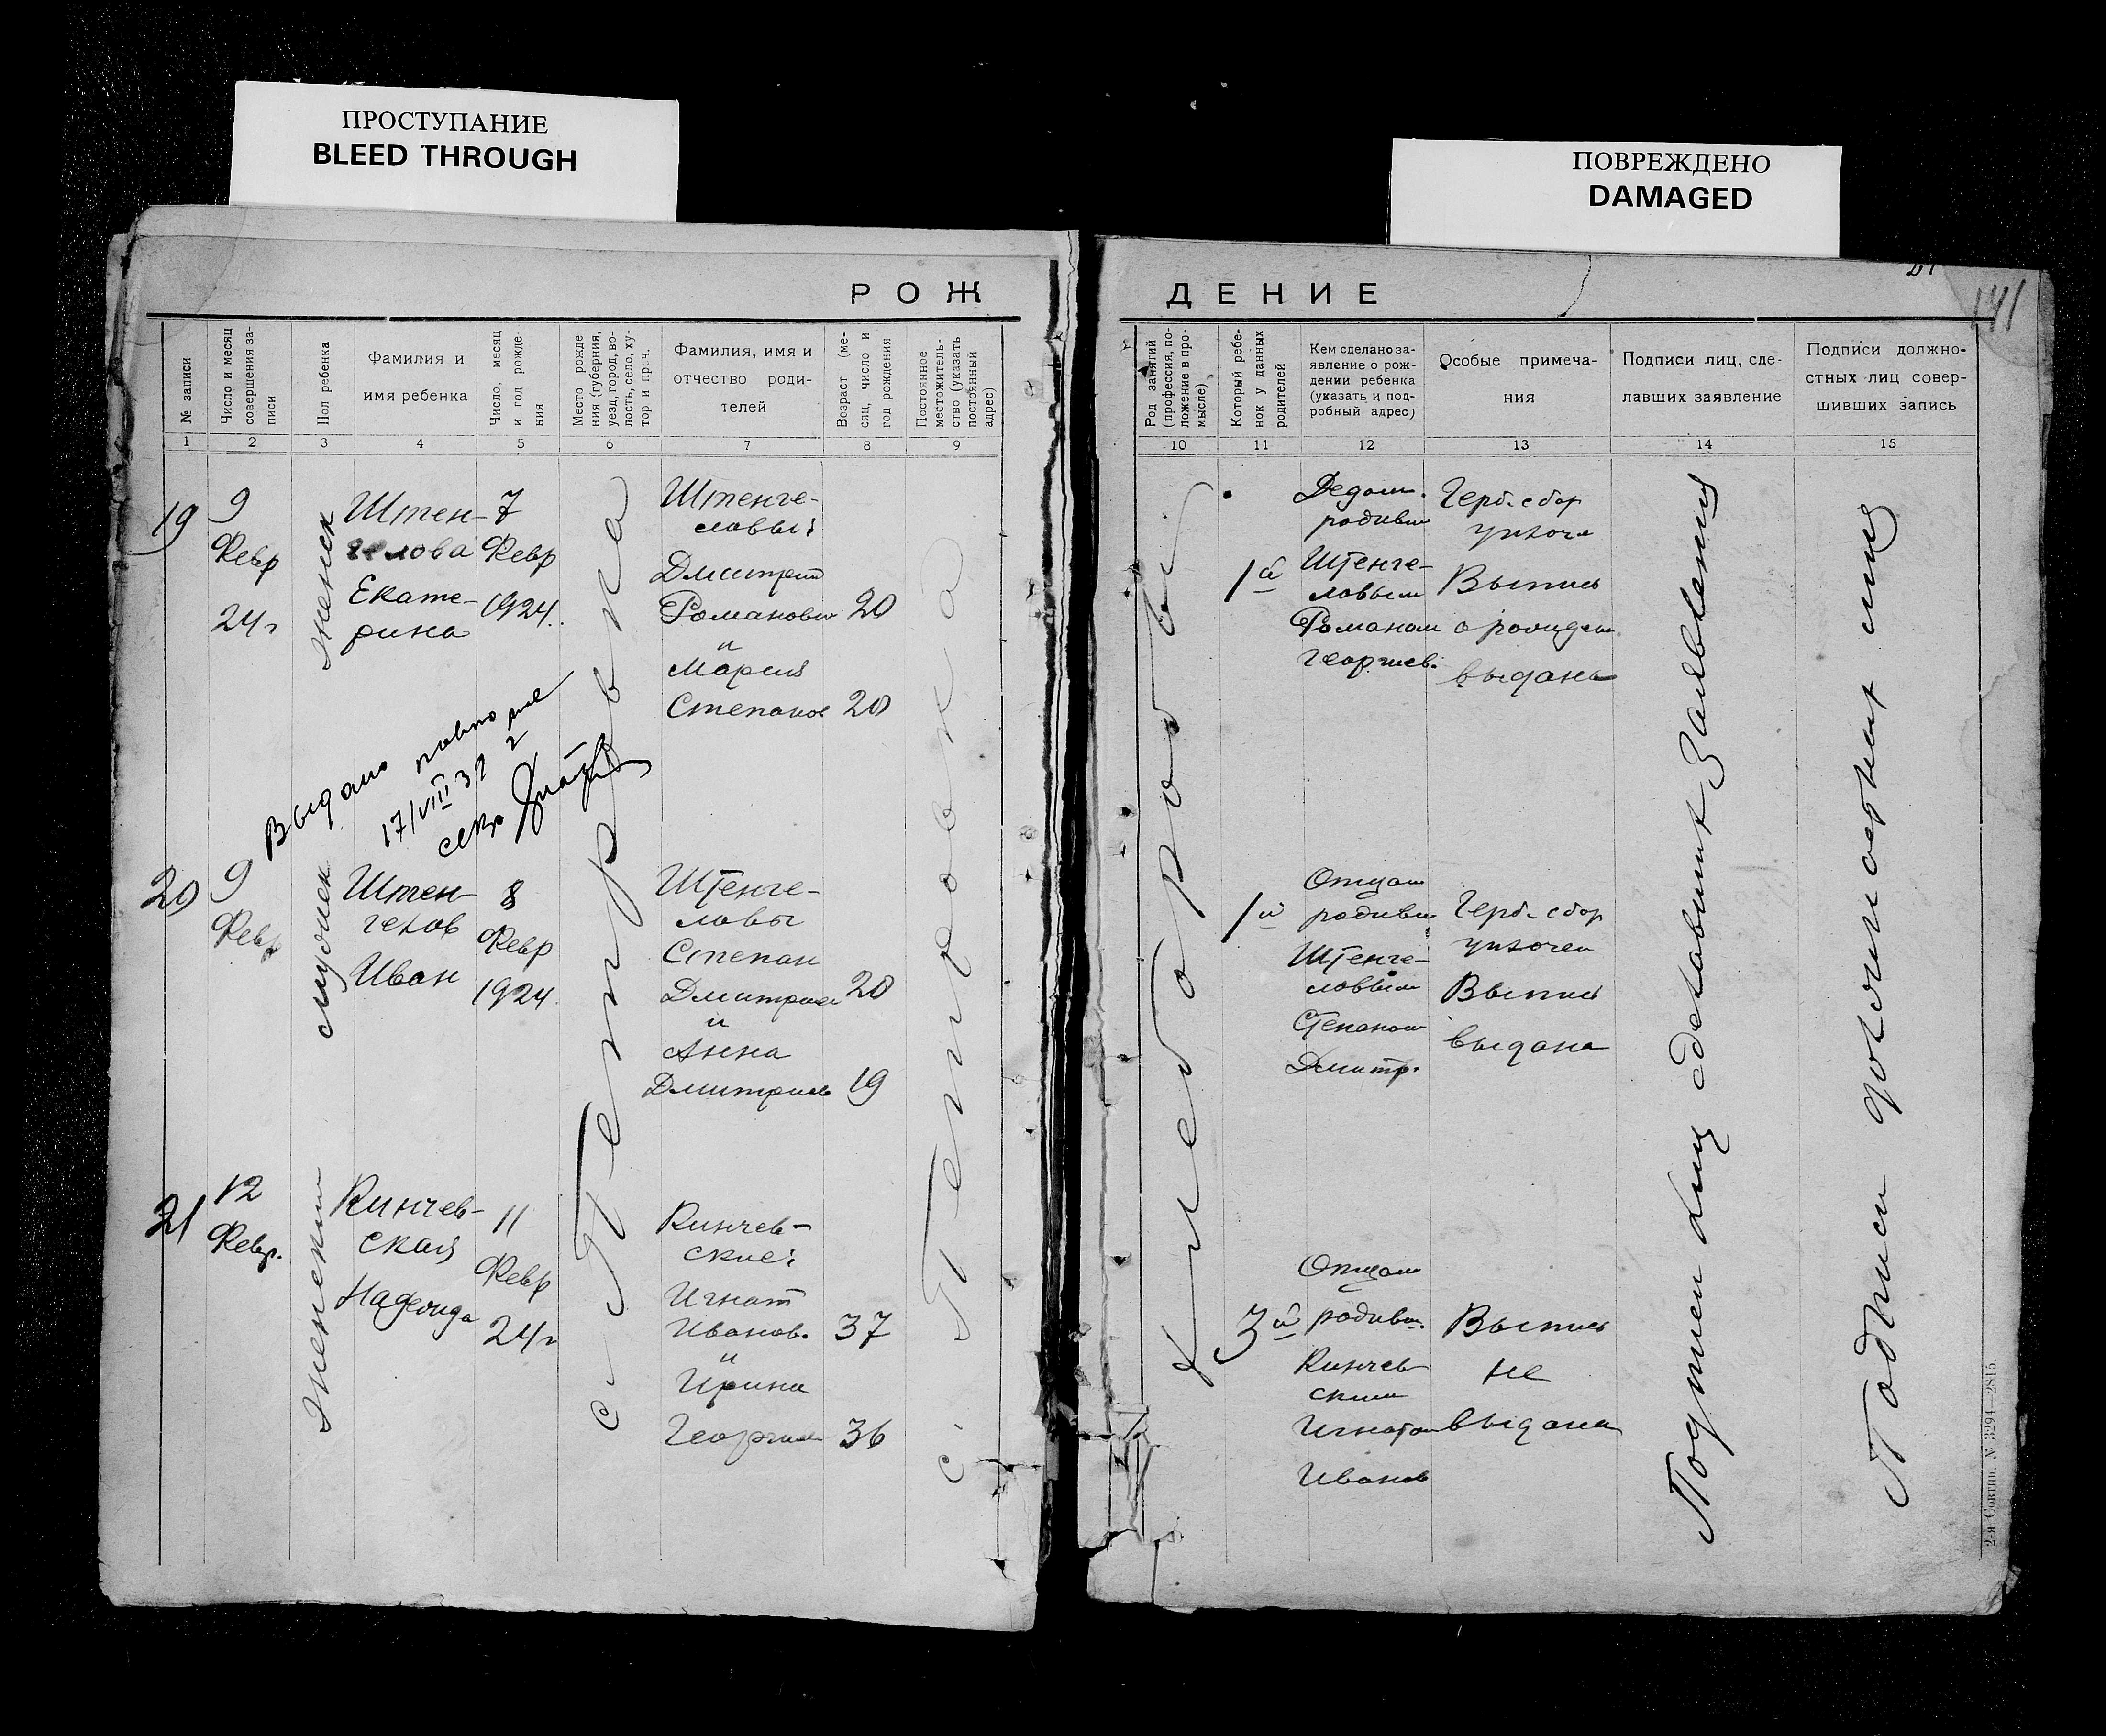 ПРОСТУПАНИЕ
BLEED THROUGH
ПОВРЕЖДЕНО
DAMAGED
РОЖ
ДЕНИЕ
141
№ записи
Число и месяц
совершения за-
писи
Пол ребенка
Фамилия и
имя ребенка
Число, месяц
и год рожде-
ния
Место рожде
ния (губерния,
уезд, город, во-
лость, село, ху-
тор и пр.ч.
Фамилия, имя и
отчество роди-
телей
Возраст (ме-
сяц, число и
год рождения
Постоянное
местожитель-
ство (указать
постоянный
адрес)
Род занятий
(профессия, по-
ложение в про-
мысле)
Который ребе-
нок у данных
родителей
Кем сделано за-
явление о рож-
дении ребенка
(указать и под-
робный адрес)
Особые примеча-
ния
Подписи лиц, сде-
лавших заявление
Подписи должно-
стных лиц совер-
шивших запись
1 2 3 4 5 6 7 8 9
10 11 12 13 14 15
19
9
Февр
24г
женск
Штен-
гелова
Екате-
рина
7
Февр
1924.
с. Петровка
Штенге-
ловы:
Дмитрий
Романович
и
Мария
Степанов
20
20
с. Петровка
Хлебороб
1й
Дедом
родивш
Штенге-
ловым
Романом
Георгиев.
Герб. сбор
уплоч
Выпись
о рожден
выдана
Подписи лиц сделавших Заявления
Подписи должностных лиц
Выдано повторное
17/VIII 32 г
секр
20
9
Февр
мужск
Штен-
гелов
Иван
8
Февр
1924
Штенге-
ловы
Степан
Дмитриев
и
Анна
Дмитриев
20
19
1й
Отцом
родивш
Штенге-
ловым
Степаном
Дмитр.
Герб. сбор
уплочен
Выпись
выдана
21
12
Февр.
Женский
Кинчев-
ская
Надежда
11
Февр
24г
Кинчев-
ские:
Игнат
Иванов.
и
Ирина
Георгиев
37
36
3й
Отцом
родивш.
Кинчев
ским
Игнатом
Иванов
Выпись
не
выдана
2-я Совтип. № 3294—2815.